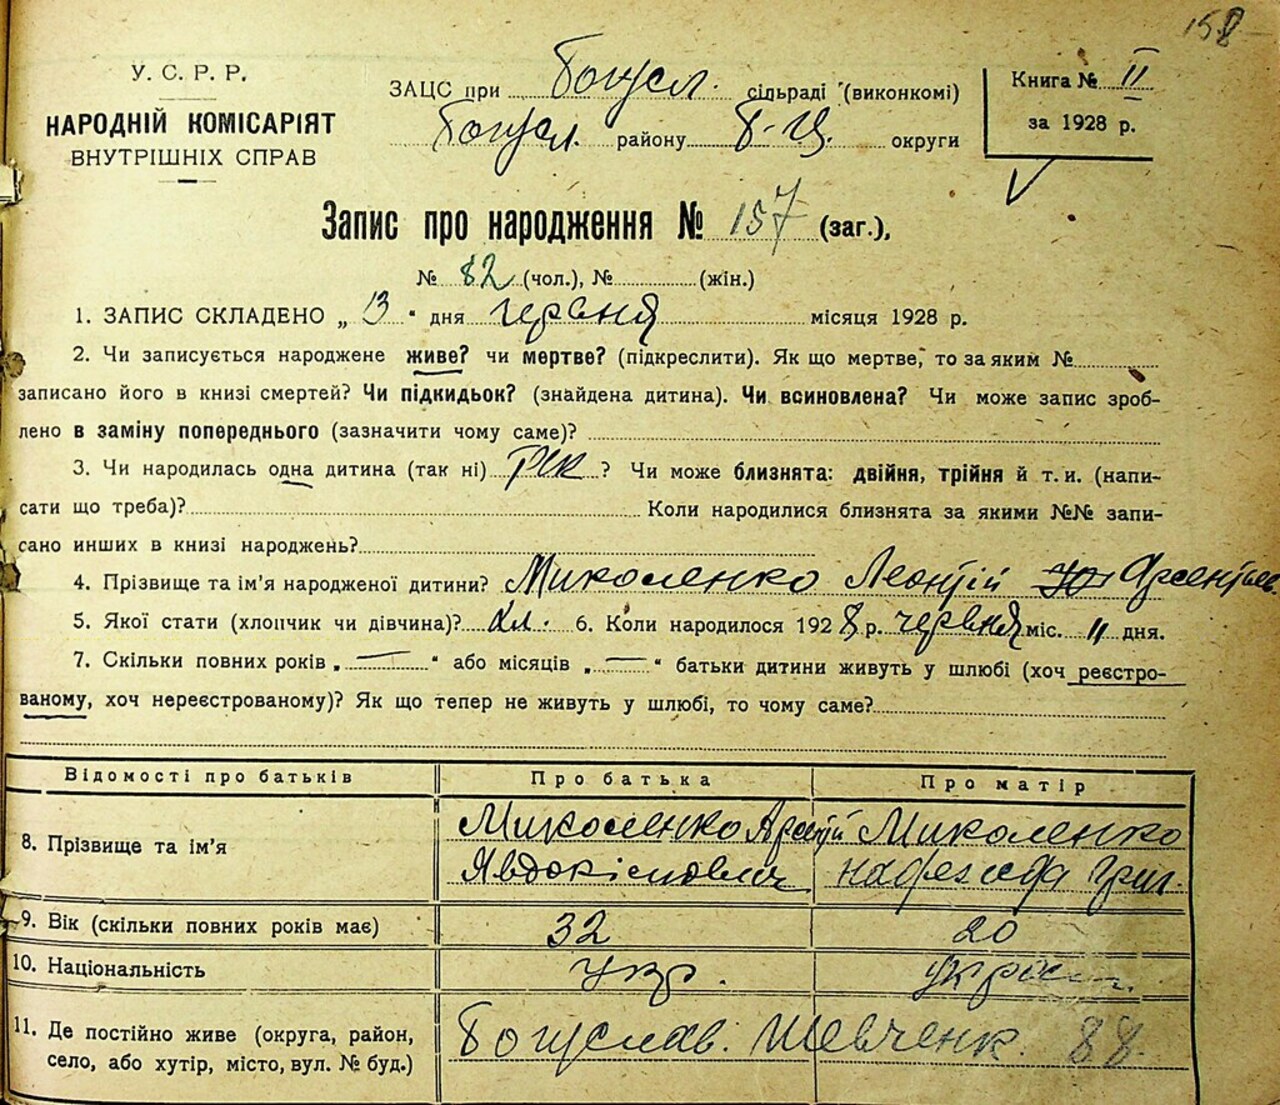 158
У. С. Р. Р.
НАРОДНІЙ КОМІСАРІЯТ
ВНУТРІШНІХ СПРАВ
ЗАЦС при Богусл. сільраді (виконкомі)
Богусл. району Б-Ц. округи
Книга № II
за 1928 р.
Запис про народження № 157 (заг.),
№ 82 (чол.), № (жін.)
1. ЗАПИС СКЛАДЕНО „ 13 " дня червня місяця 1928 р.
2. Чи записується народжене живе? чи мертве? (підкреслити). Як що мертве, то за яким №
записано його в книзі смертей? Чи підкидьок? (знайдена дитина). Чи всиновлена? Чи може запис зроб-
лено в заміну попереднього (зазначити чому саме)?
3. Чи народилась одна дитина (так ні) ? Чи може близнята: двійня, трійня й т. и. (напи-
сати що треба)? Коли народилися близнята за якими №№ запи-
сано инших в книзі народжень?
4. Прізвище та ім'я народженої дитини? Миколенко Леонтій Арсентьев.
5. Якої стати (хлопчик чи дівчина)? хл. 6. Коли народилося 1928 р. червня міс. 11 дня.
7. Скільки повних років „ — " або місяців „ — " батьки дитини живуть у шлюбі (хоч реєстро-
ваному, хоч нереєстрованому)? Як що тепер не живуть у шлюбі, то чому саме?
Відомості про батьків Про батька Про матір
8. Прізвище та ім'я Миколенко Арсентій Миколенко
Явдокімович Надежда Григ.
9. Вік (скільки повних років має) 32 20
10. Національність укр. україн.
11. Де постійно живе (округа, район,
село, або хутір, місто, вул. № буд.) Богуслав. Шевченк. 88.